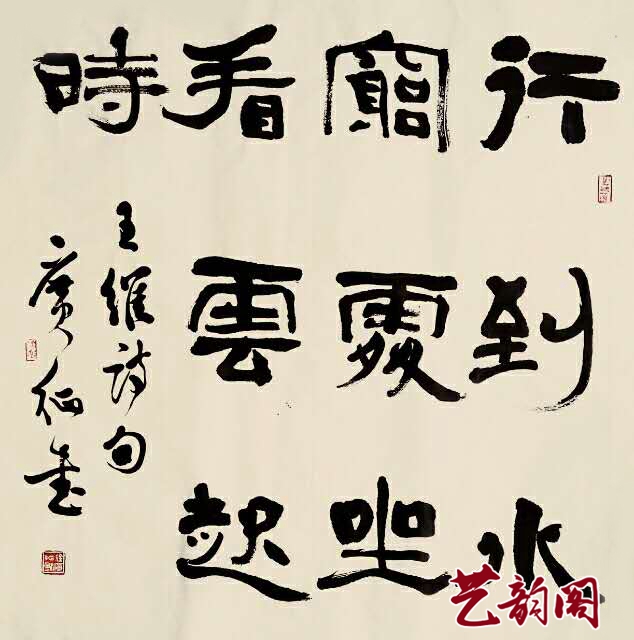 行到水
窮處坐
看雲起
時
王維詩句
廣仙書
艺韵阁